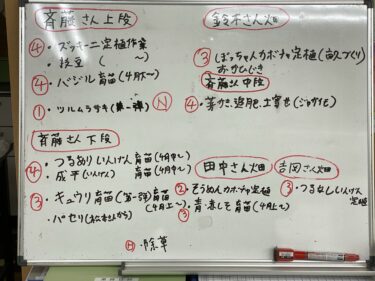 斉藤さん上段
④・ズッキーニ定植作業
・枝豆 ( 〜)
④・バジル育苗(4月下〜)
①・ツルムラサキ(第一弾)
N
斉藤さん下段
④・つるありいんげん育苗(4月中〜)
・成平(いんげん)育苗(4月中〜)
③・キュウリ育苗(第一弾)育苗
(4月上〜)
・パセリ(松本さんから)
鈴木さん畑
③・ぼっちゃんカボチャ定植(畝づくり)
斉藤さん中段
④・芽かき、追肥、土寄せ(ジャガイモ)
田中さん畑
②・そうめんカボチャ定植
③・青しそ育苗(4月上〜)
吉岡さん畑
③・つるなしいんげん
定植
日・除草